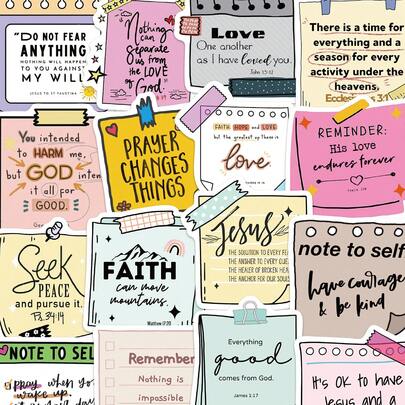 "DO NOT FEAR
ANYTHING
NOTHING WILL HAPPEN
TO YOU AGAINST
MY WILL"
JESUS TO ST FAUSTINA
"Nothing
can
Separate
Us from
the LOVE
of God."
Love
One another
as I have loved you.
John 15:12
There is a time for
everything and a
season for every
activity under the
heavens,
Eccles
You intended
to HARM me.
but GOD inten
it all for
GOOD.
Gen
PRAYER
CHANGES
THINGS
FAITH HOPE and LOVE
but the greatest of these is
love
REMINDER:
His love
endures forever
Seek
PEACE
and pursue it.
Ps. 34:14
FAITH
can move
mountains.
Matthew 17:20
Jesus
THE SOLUTION TO EVERY
THE ANSWER TO EVERY
THE HEALER OF BROKEN HEA
THE ANCHOR FOR OUR SOUL
note to self
have courage
& be kind
NOTE TO SEL
pray when you
wake up.
Remember
Nothing is
impossible
Everything
good
comes from God.
James 1:17
It's OK to have
Jesus and a